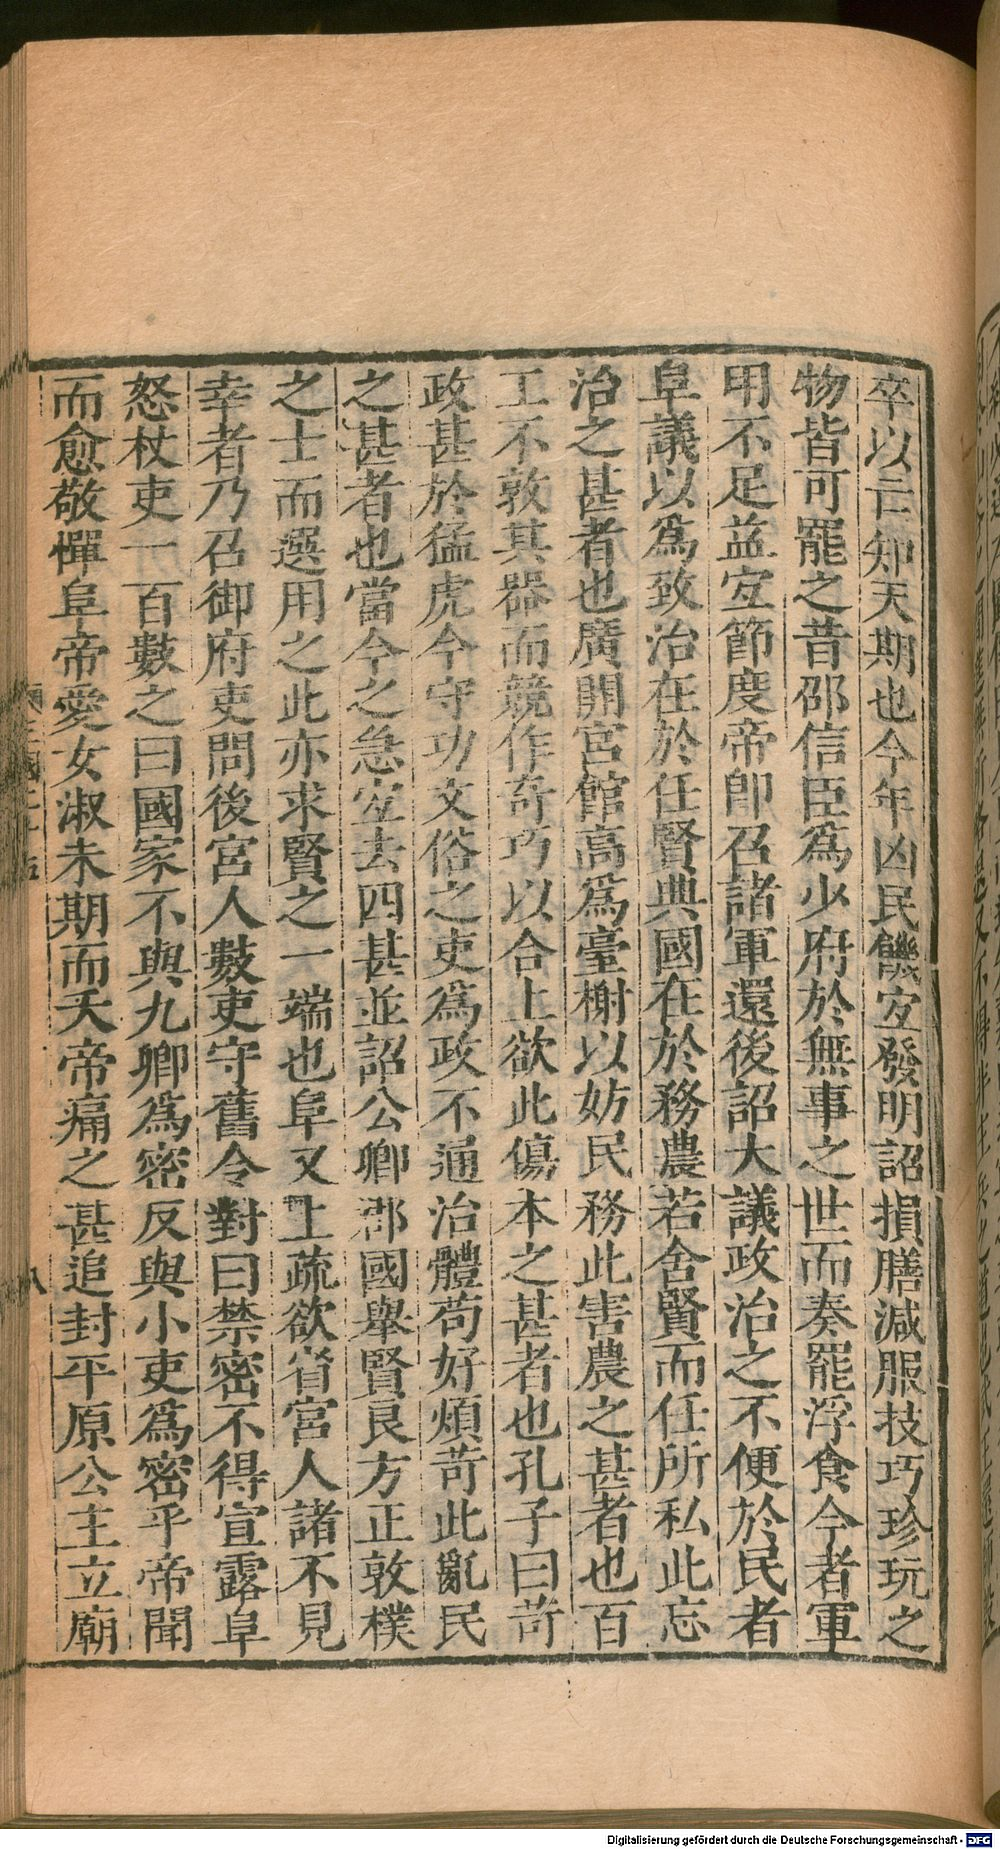 卒以亡知天期也今年凶民饑宐發明詔損膳減服技巧珍玩之
物皆可罷之昔邵信臣爲少府於無事之世而奏罷浮食今者軍
用不足益宐節度帝卽召諸軍還後詔大議政治之不便於民者
阜議以爲致治在於任賢典國在於務農若舍賢而任所私此忘
治之甚者也廣開宮館高爲臺榭以妨民務此害農之甚者也百
工不敦其器而競作奇巧以合上欲此傷本之甚者也孔子曰苛
政甚於猛虎今守功文俗之吏爲政不通治體苟好煩苛此亂民
之甚者也當今之急宐去四甚並詔公卿郡國舉賢良方正敦樸
之士而選用之此亦求賢之一端也阜又上疏欲省宮人諸不見
幸者乃召御府吏問後宮人數吏守舊令對曰禁密不得宣露阜
怒杖吏一百數之曰國家不與九卿爲密反與小吏爲密乎帝聞
而愈敬憚阜帝愛女淑未期而夭帝痛之甚追封平原公主立廟
八
Digitalisierung gefördert durch die Deutsche Forschungsgemeinschaft - DFG